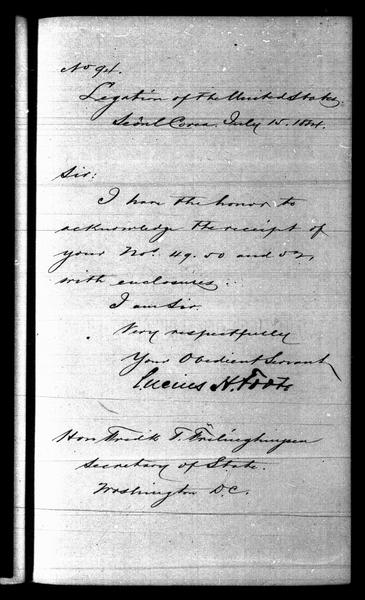 No 94.
Legation of the United States
Seoul Corea. July 15. 1884.
Sir:
I have the honor to
acknowledge the receipt of
your Nos. 49. 50 and 52,
with enclosures.
I am Sir.
Very respectfully
Your Obedient Servant
Lucius H. Foote
Hon Fredk T. Frelinghuysen
Secretary of State.
Washington D.C.